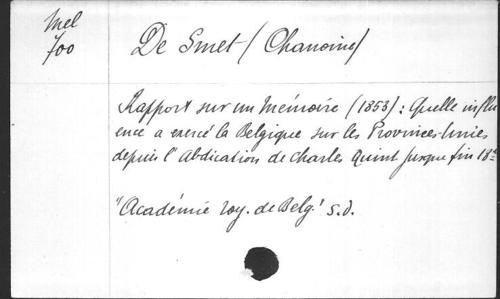 Mel
700
De Smet (Chanoine)
Rapport sur un Mémoire (1853) : Quelle influ
ence a exercé la Belgique sur les Provinces-Unies
depuis l'Abdication de Charles Quint jusque fin 18e
"Académie roy. de Belg." s.d.